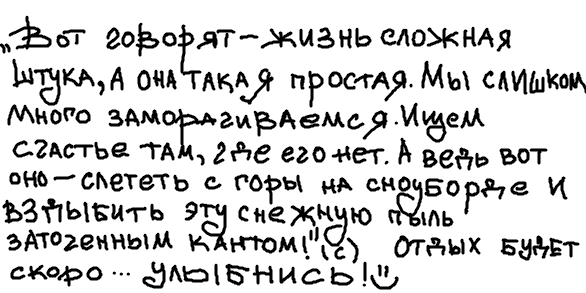 „Вот говорят – жизнь сложная
штука, а она такая простая. Мы слишком
много заморагиваемся. Ищем
счастье там, где его нет. А ведь вот
оно – слететь с горы на сноуборде и
вздыбить эту снежную пыль
затогенным кантом!" (с) Отдых будет
скоро... Улыбнись! :)